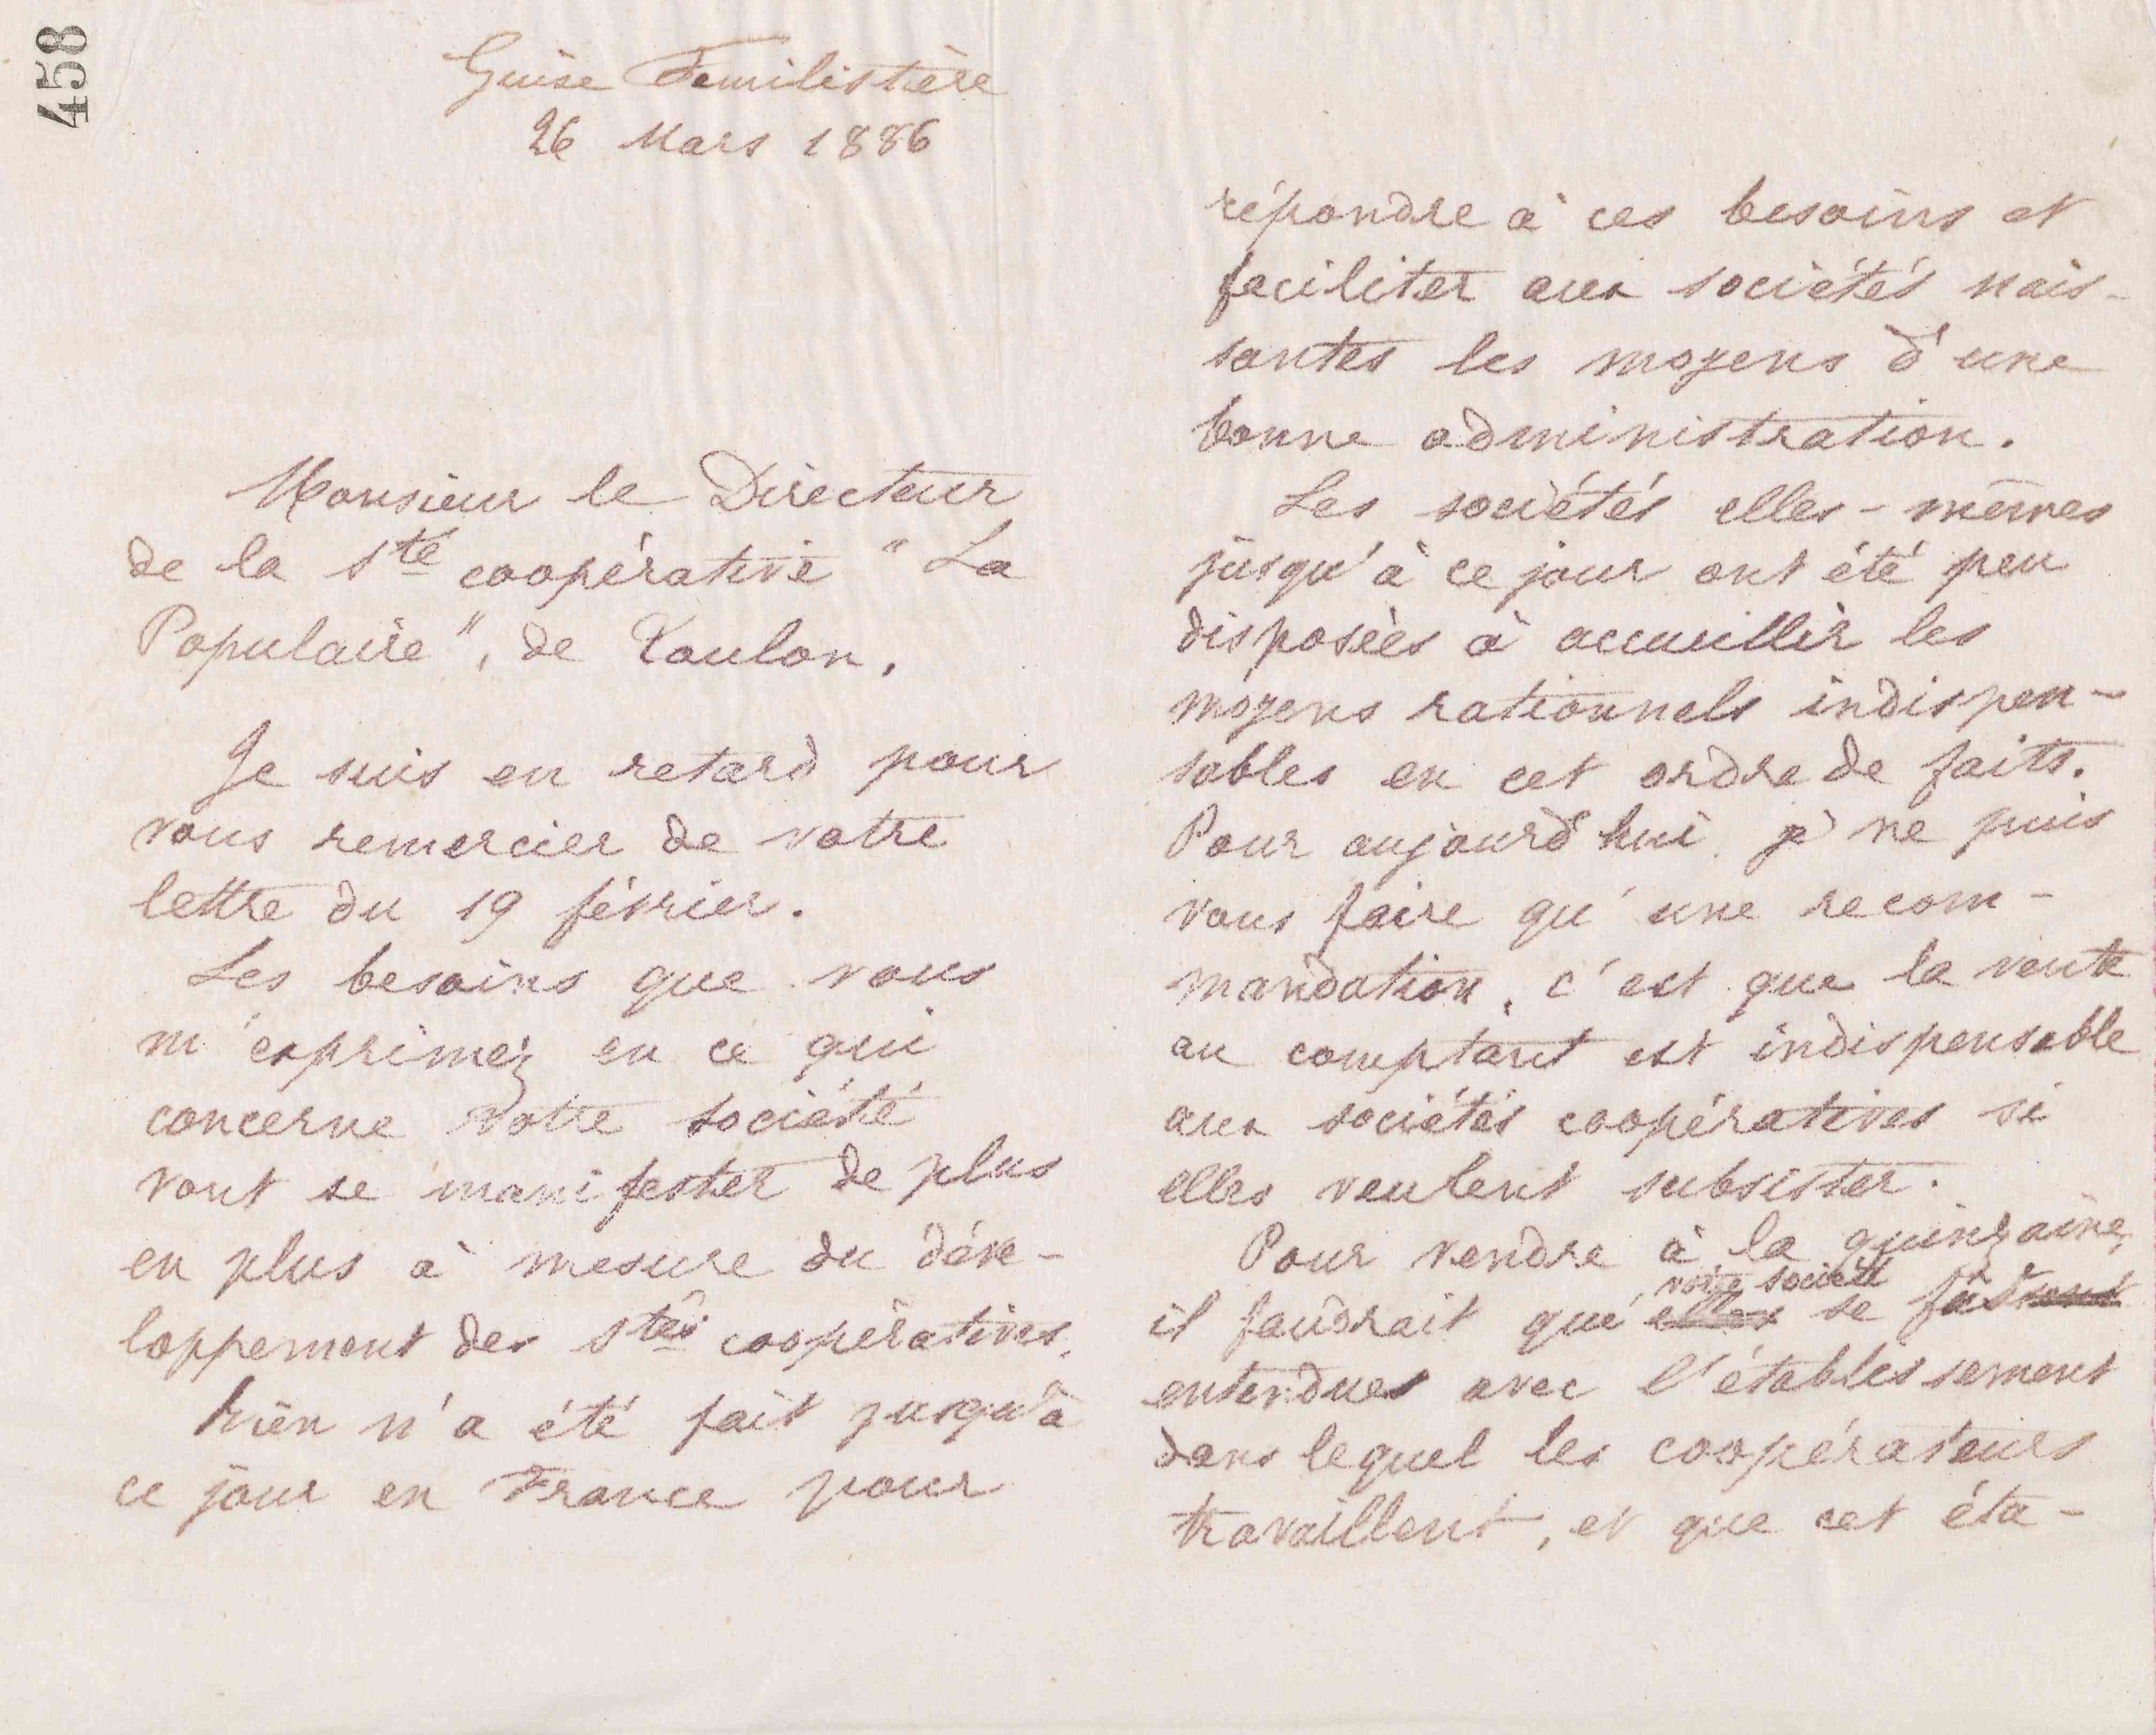 458
Guise Familistère
26 Mars 1886
Monsieur le Directeur
de la Sté coopérative "La
Populaire", de Toulon.
Je suis en retard pour
vous remercier de votre
lettre du 19 février.
Les besoins que vous
m'exprimez en ce qui
concerne votre société
vont se manifester de plus
en plus à mesure du déve-
loppement des Stés coopératives.
Rien n'a été fait jusqu'à
ce jour en France pour
répondre à ces besoins et
faciliter aux sociétés nais-
santes les moyens d'une
bonne administration.
Les sociétés elles-mêmes
jusqu'à ce jour ont été peu
disposées à accueillir les
moyens rationnels indispen-
sables en cet ordre de faits.
Pour aujourd'hui je ne puis
vous faire qu'une recom-
mandation, c'est que la vente
au comptant est indispensable
aux sociétés coopératives si
elles veulent subsister.
Pour vendre à la quinzaine,
votre société
il faudrait que elles se fût
entendues avec l'établissement
dans lequel les coopérateurs
travaillent, et que cet éta-